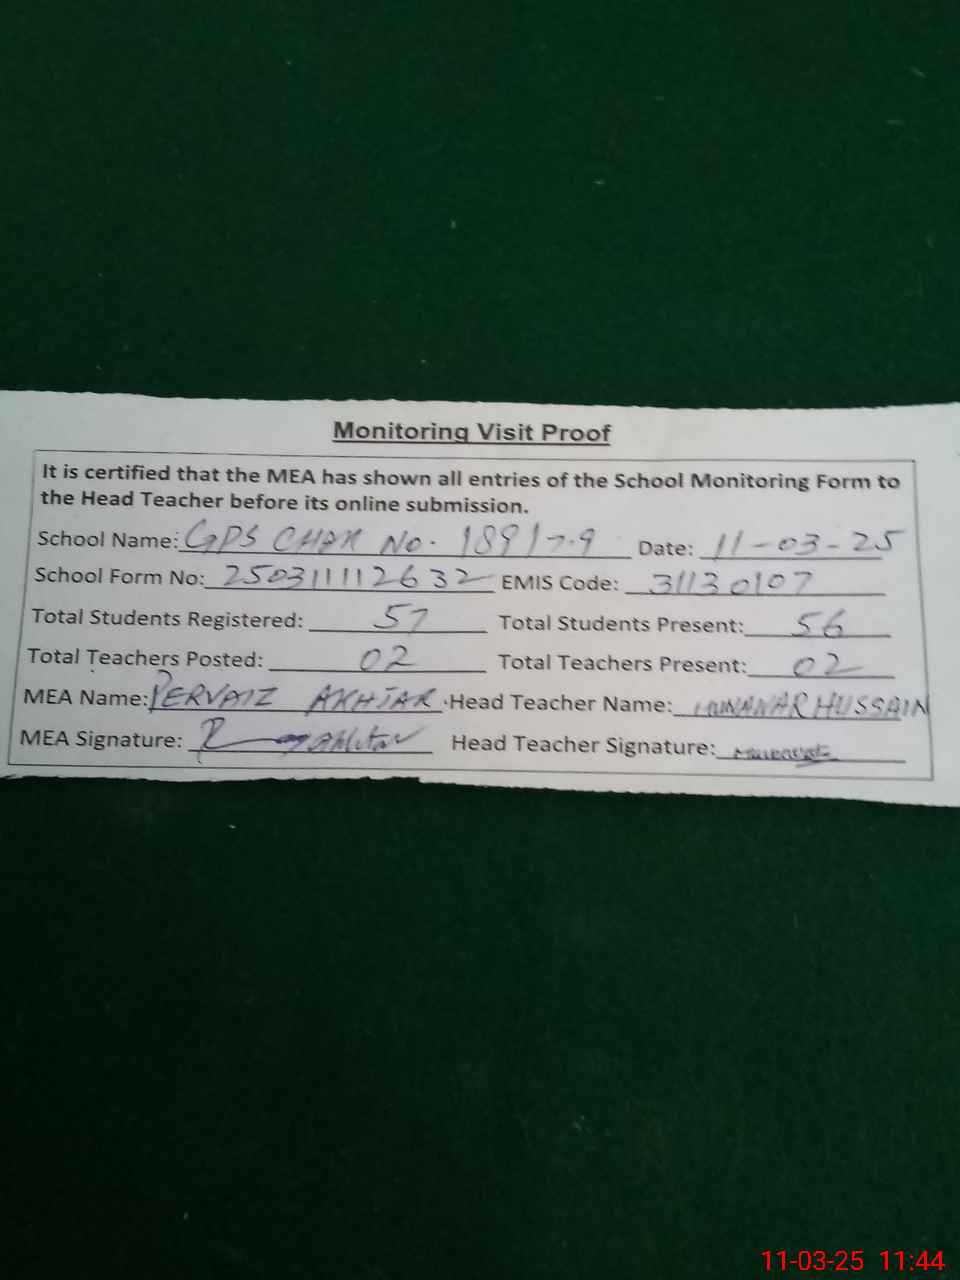 Monitoring Visit Proof
It is certified that the MEA has shown all entries of the School Monitoring Form to
the Head Teacher before its online submission.
School Name: GPS CHAK No. 189/7.9 Date: 11-03-25
School Form No: 250311112632 EMIS Code: 31130107
Total Students Registered: 57 Total Students Present: 56
Total Teachers Posted: 02 Total Teachers Present: 02
MEA Name: PERVAIZ AKHTAR. Head Teacher Name: HUSSAIN
MEA Signature: Akhtar Head Teacher Signature:
11-03-25 11:44